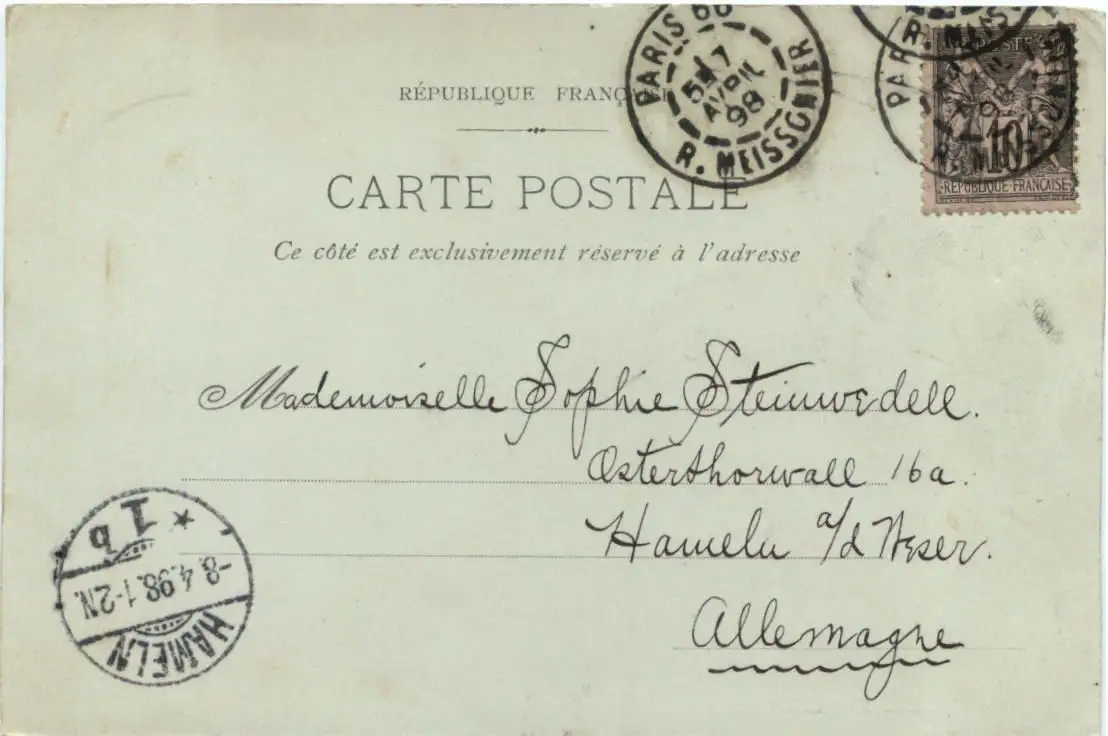 RÉPUBLIQUE FRANÇAISE
CARTE POSTALE
Ce côté est exclusivement réservé à l'adresse
PARIS 66
7
AVRIL
98
R. MEISSONIER
PARIS
R. MEISSONIER
POSTE
10
RÉPUBLIQUE FRANÇAISE
Mademoiselle Sophie Steinwedell.
Osterthorwall 16a.
Hameln a/d Weser.
Allemagne
HAMELN
-8.4.98.1-2N.
* 1b